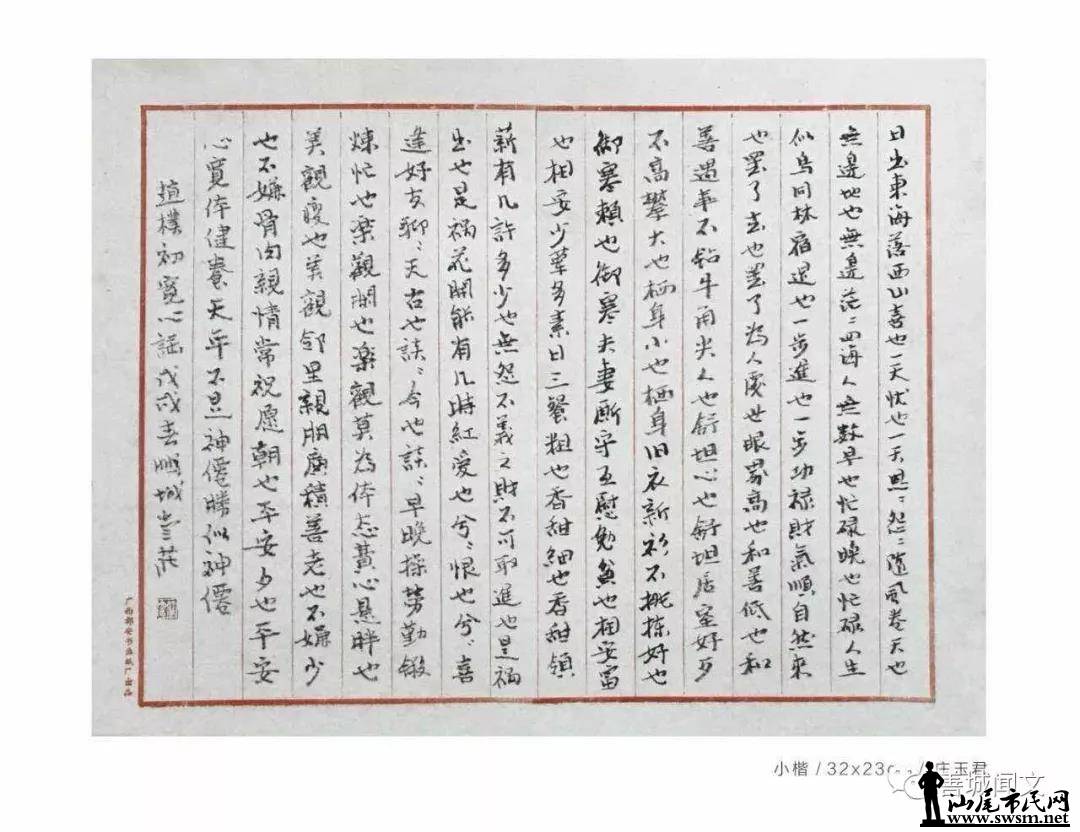 日出東海落西山喜也一天忧也一天恩〻怨〻随風卷天也
無邊地也無邊茫〻四海人無數早也忙碌晚也忙碌人生
似鸟同林宿退也一步進也一步功禄財氣順自然來
也罢了去也罢了為人處世眼界高也和善低也和
善遇事不鉆牛角尖人也舒坦心也舒坦居室好歹
不高攀大也栖身小也栖身旧衣新衫不挑揀好也
御寒賴也御寒夫妻厮守互慰勉貧也相安富
也相安少葷多素日三餐粗也香甜細也香甜領
薪有几許多少也無怨不義之財不可取進也是禍
出也是祸花開能有几時紅爱也兮〻恨也兮〻喜
逢好友聊〻天古也談〻今也談〻早晚操劳勤鍛
煉忙也楽觀閒也楽觀莫為体态費心思胖也
美觀瘦也美觀邻里親朋廣積善老也不嫌少
也不嫌骨肉親情常祝愿朝也平安夕也平安
心寬体健養天年不是神僊勝似神僊
趙樸初寬心謡戊戌春順城莊
小楷 / 32x23 庄玉君
善城闻文
汕尾市民网
www.swsm.net